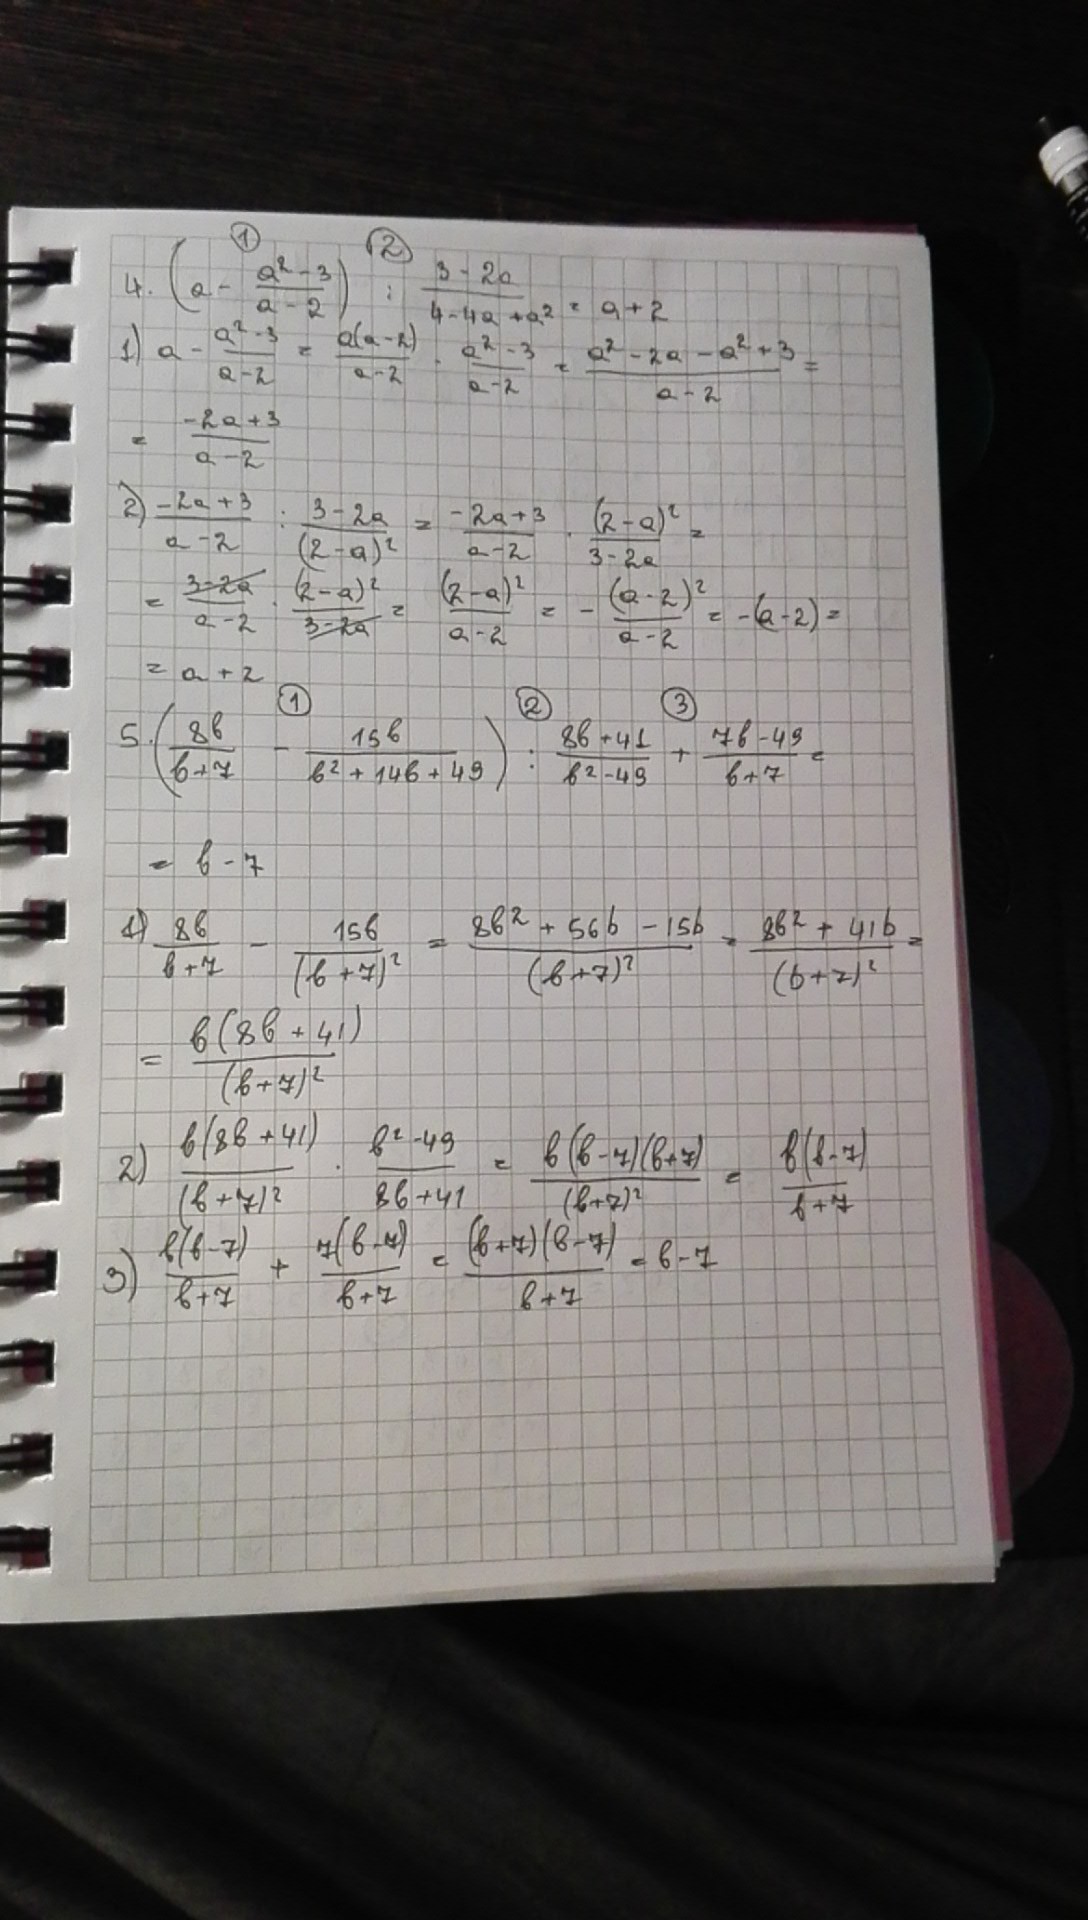 ① ②
4. (a - (a² - 3)/(a - 2)) : (3 - 2a)/(4 - 4a + a²) = a + 2
1) a - (a² - 3)/(a - 2) = a(a - 2)/(a - 2) - (a² - 3)/(a - 2) = (a² - 2a - a² + 3)/(a - 2) =
= (-2a + 3)/(a - 2)
2) (-2a + 3)/(a - 2) : (3 - 2a)/(2 - a)² = (-2a + 3)/(a - 2) · (2 - a)²/(3 - 2a) =
= (3 - 2a)/(a - 2) · (2 - a)²/(3 - 2a) = (2 - a)²/(a - 2) = - (a - 2)²/(a - 2) = -(a - 2) =
= a + 2
① ② ③
5. (8b/(b + 7) - 15b/(b² + 14b + 49)) : (8b + 41)/(b² - 49) + (7b - 49)/(b + 7) =
= b - 7
1) 8b/(b + 7) - 15b/(b + 7)² = (8b² + 56b - 15b)/(b + 7)² = (8b² + 41b)/(b + 7)² =
= b(8b + 41)/(b + 7)²
2) b(8b + 41)/(b + 7)² · (b² - 49)/(8b + 41) = b(b - 7)(b + 7)/(b + 7)² = b(b - 7)/(b + 7)
3) b(b - 7)/(b + 7) + 7(b - 7)/(b + 7) = (b + 7)(b - 7)/(b + 7) = b - 7